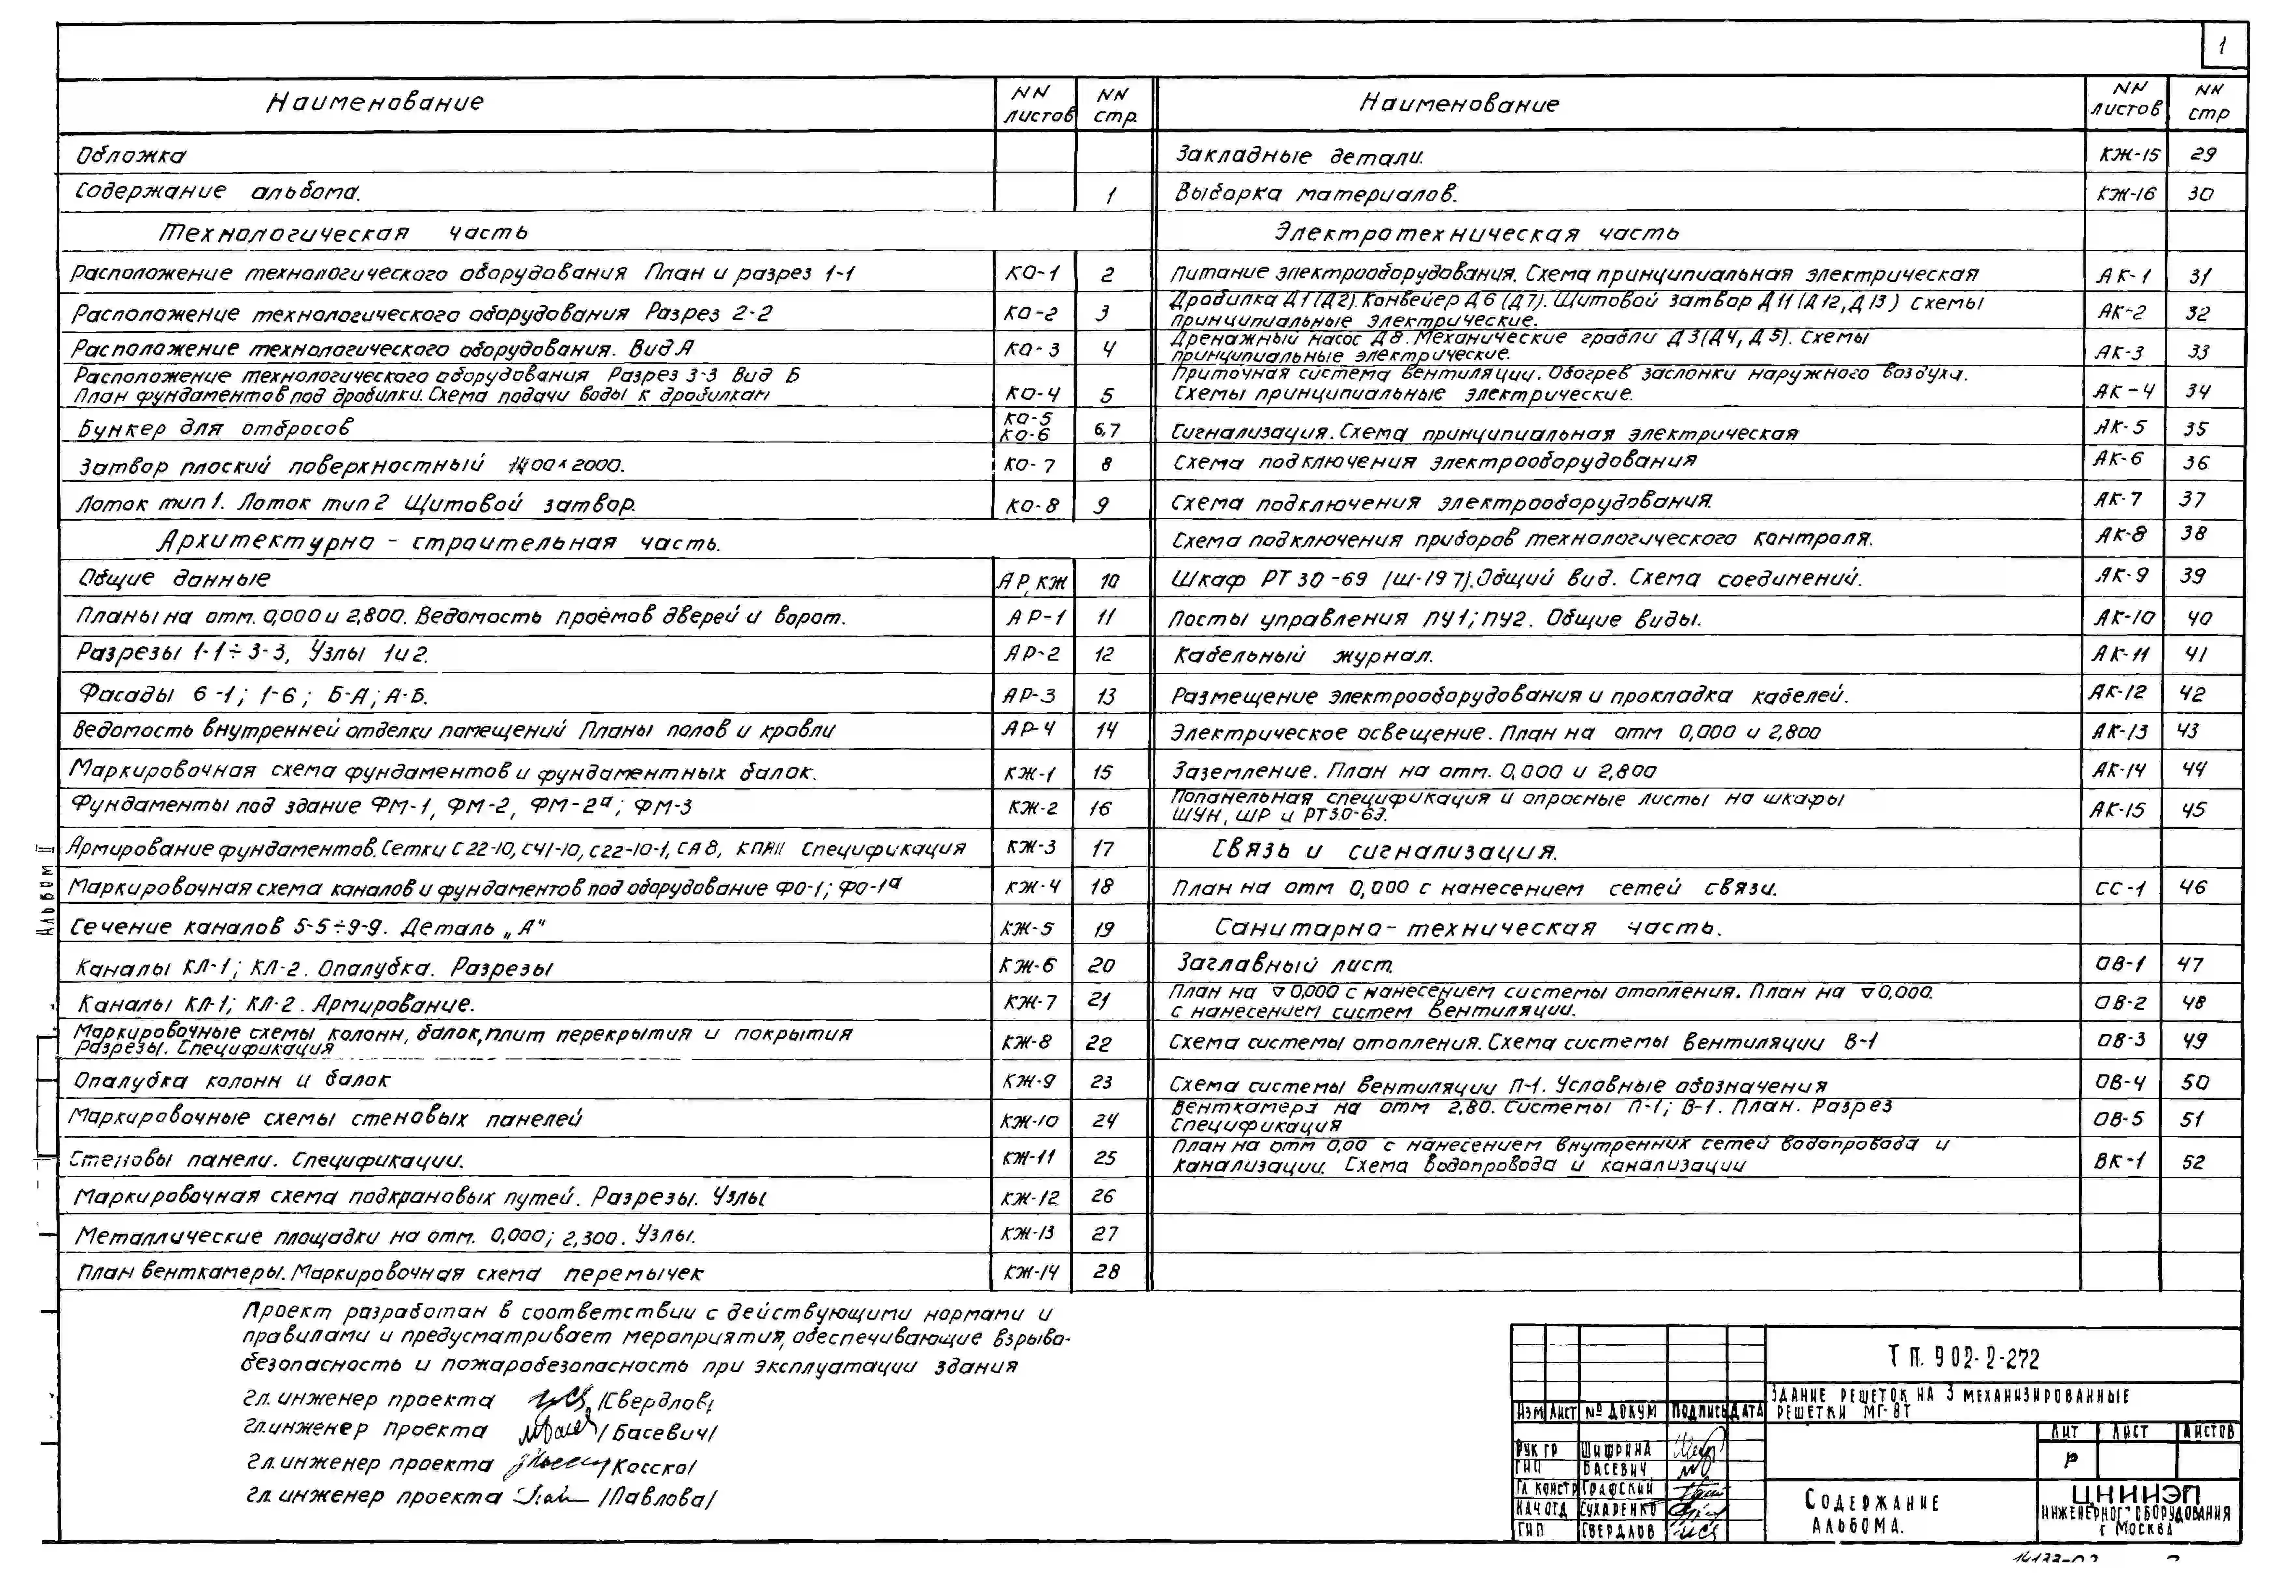 1
Наименование NN листов NN стр.
Обложка
Содержание альбома. 1
Технологическая часть
Расположение технологического оборудования План и разрез 1-1 КО-1 2
Расположение технологического оборудования Разрез 2-2 КО-2 3
Расположение технологического оборудования. Вид А КО-3 4
Расположение технологического оборудования Разрез 3-3 Вид Б
План фундаментов под дробилки. Схема подачи воды к дробилкам КО-4 5
Бункер для отбросов КО-5 КО-6 6,7
Затвор плоский поверхностный 1400×2000. КО-7 8
Лоток тип 1. Лоток тип 2 Щитовой затвор. КО-8 9
Архитектурно - строительная часть.
Общие данные АР, КЖ 10
Планы на отм. 0,000 и 2,800. Ведомость проёмов дверей и ворот. АР-1 11
Разрезы 1-1÷3-3, Узлы 1 и 2. АР-2 12
Фасады 6-1; 1-6; Б-А; А-Б. АР-3 13
Ведомость внутренней отделки помещений Планы полов и кровли АР-4 14
Маркировочная схема фундаментов и фундаментных балок. КЖ-1 15
Фундаменты под здание ФМ-1, ФМ-2, ФМ-2а; ФМ-3 КЖ-2 16
Армирование фундаментов. Сетки С22-10, С41-10, С22-10-1, СА8, Спецификация КЖ-3 17
Маркировочная схема каналов и фундаментов под оборудование ФО-1; ФО-1а КЖ-4 18
Сечение каналов 5-5÷9-9. Деталь „А" КЖ-5 19
Каналы КЛ-1; КЛ-2. Опалубка. Разрезы КЖ-6 20
Каналы КЛ-1; КЛ-2. Армирование. КЖ-7 21
Маркировочные схемы колонн, балок, плит перекрытия и покрытия
Разрезы. Спецификация КЖ-8 22
Опалубка колонн и балок КЖ-9 23
Маркировочные схемы стеновых панелей КЖ-10 24
Стеновы панели. Спецификации. КЖ-11 25
Маркировочная схема подкрановых путей. Разрезы. Узлы КЖ-12 26
Металлические площадки на отм. 0,000; 2,300. Узлы. КЖ-13 27
План венткамеры. Маркировочная схема перемычек КЖ-14 28
Наименование NN листов NN стр
Закладные детали. КЖ-15 29
Выборка материалов. КЖ-16 30
Электротехническая часть
Питание электрооборудования. Схема принципиальная электрическая АК-1 31
Дробилка Д1 (Д2). Конвейер Д6 (Д7). Щитовой затвор Д11 (Д12, Д13) Схемы
принципиальные электрические. АК-2 32
Дренажный насос Д8. Механические грабли Д3 (Д4, Д5). Схемы
принципиальные электрические. АК-3 33
Приточная система вентиляции. Обогрев заслонки наружного воздуха.
Схемы принципиальные электрические. АК-4 34
Сигнализация. Схема принципиальная электрическая АК-5 35
Схема подключения электрооборудования АК-6 36
Схема подключения электрооборудования. АК-7 37
Схема подключения приборов технологического контроля. АК-8 38
Шкаф РТ 30-69 (Ш-197). Общий вид. Схема соединений. АК-9 39
Посты управления ПУ1; ПУ2. Общие виды. АК-10 40
Кабельный журнал. АК-11 41
Размещение электрооборудования и прокладка кабелей. АК-12 42
Электрическое освещение. План на отм 0,000 и 2,800 АК-13 43
Заземление. План на отм. 0,000 и 2,800 АК-14 44
Попанельная спецификация и опросные листы на шкафы
ШУН, ШР и РТ30-69. АК-15 45
Связь и сигнализация.
План на отм 0,000 с нанесением сетей связи. СС-1 46
Санитарно-техническая часть.
Заглавный лист. ОВ-1 47
План на ▽ 0,000 с нанесением системы отопления. План на ▽ 0,000.
с нанесением систем вентиляции. ОВ-2 48
Схема системы отопления. Схема системы вентиляции В-1 ОВ-3 49
Схема системы вентиляции П-1. Условные обозначения ОВ-4 50
Венткамера на отм 2,80. Системы П-1; В-1. План. Разрез
Спецификация ОВ-5 51
План на отм 0,00 с нанесением внутренних сетей водопровода и
канализации. Схема водопровода и канализации ВК-1 52
Альбом II
Проект разработан в соответствии с действующими нормами и
правилами и предусматривает мероприятия, обеспечивающие взрыво-
безопасность и пожаробезопасность при эксплуатации здания
Гл. инженер проекта /Свердлов/
Гл. инженер проекта /Басевич/
Гл. инженер проекта /Косско/
Гл. инженер проекта /Павлова/
Т П. 902-2-272
Здание решеток на 3 механизированные
решетки МГ-8Т
Изм Лист № докум Подпись Дата
Рук гр Шифрина
ГИП Басевич
Гл констр Графский
Нач отд Сухаренко
ГИП Свердлов
Лит Лист Листов
Р
Содержание
альбома.
ЦНИИЭП
инженерног оборудования
г Москва